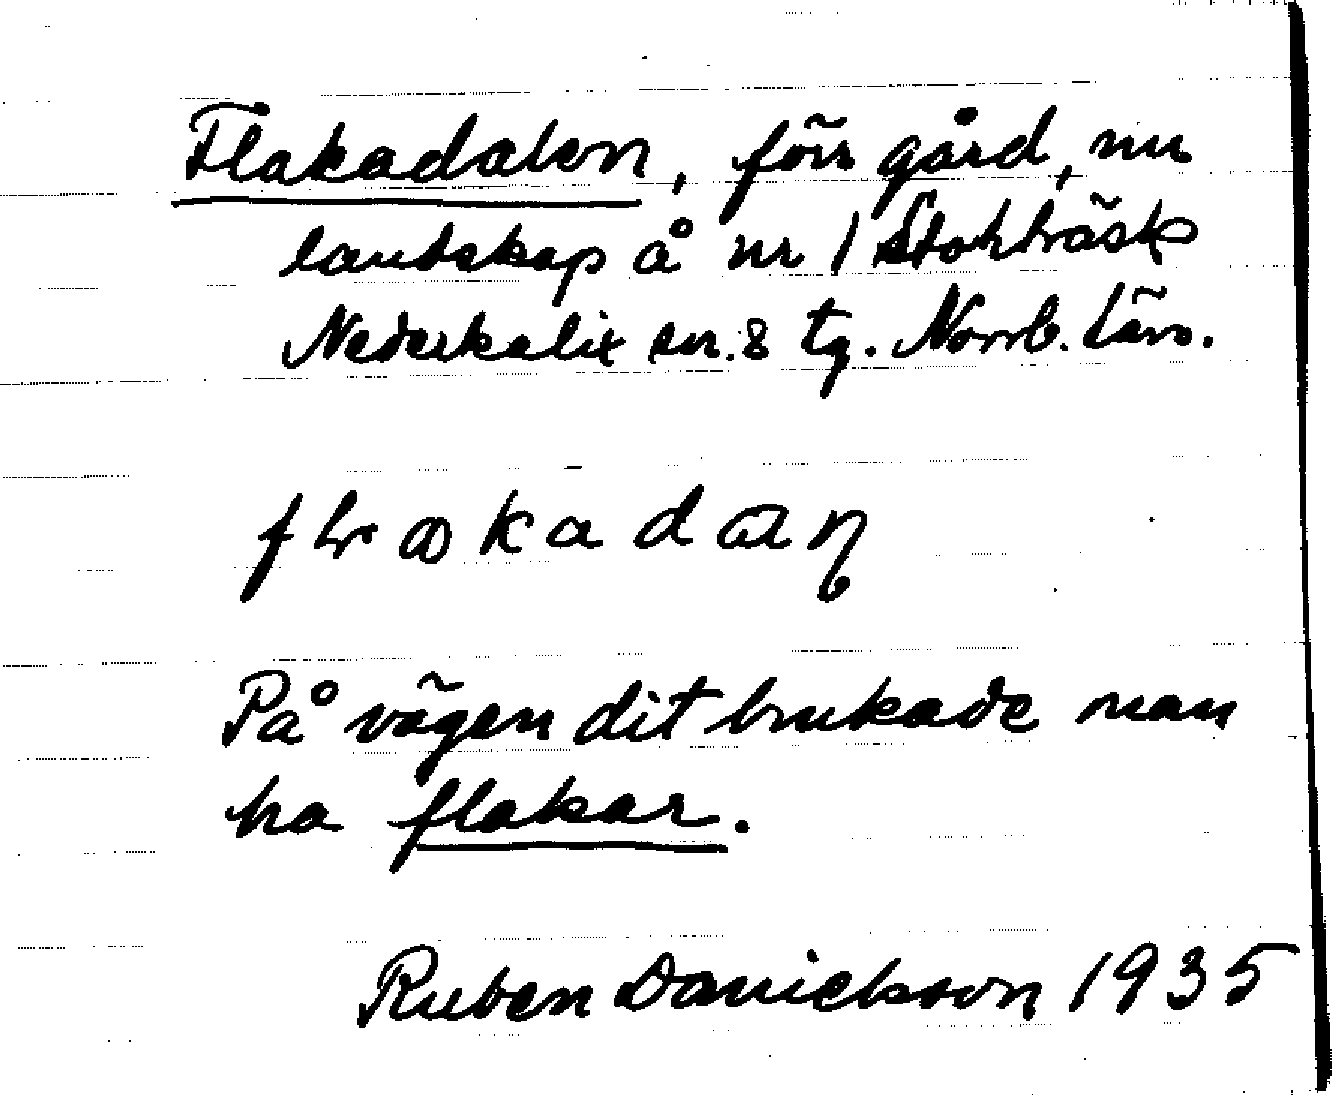 Flakadalen, förr gård, nu
landskap å nr 1 Storträsk
Nederkalix sn. 8 tg. Norrb. län.
På vägen dit brukade man
ha flakar.
Ruben Danielsson 1935